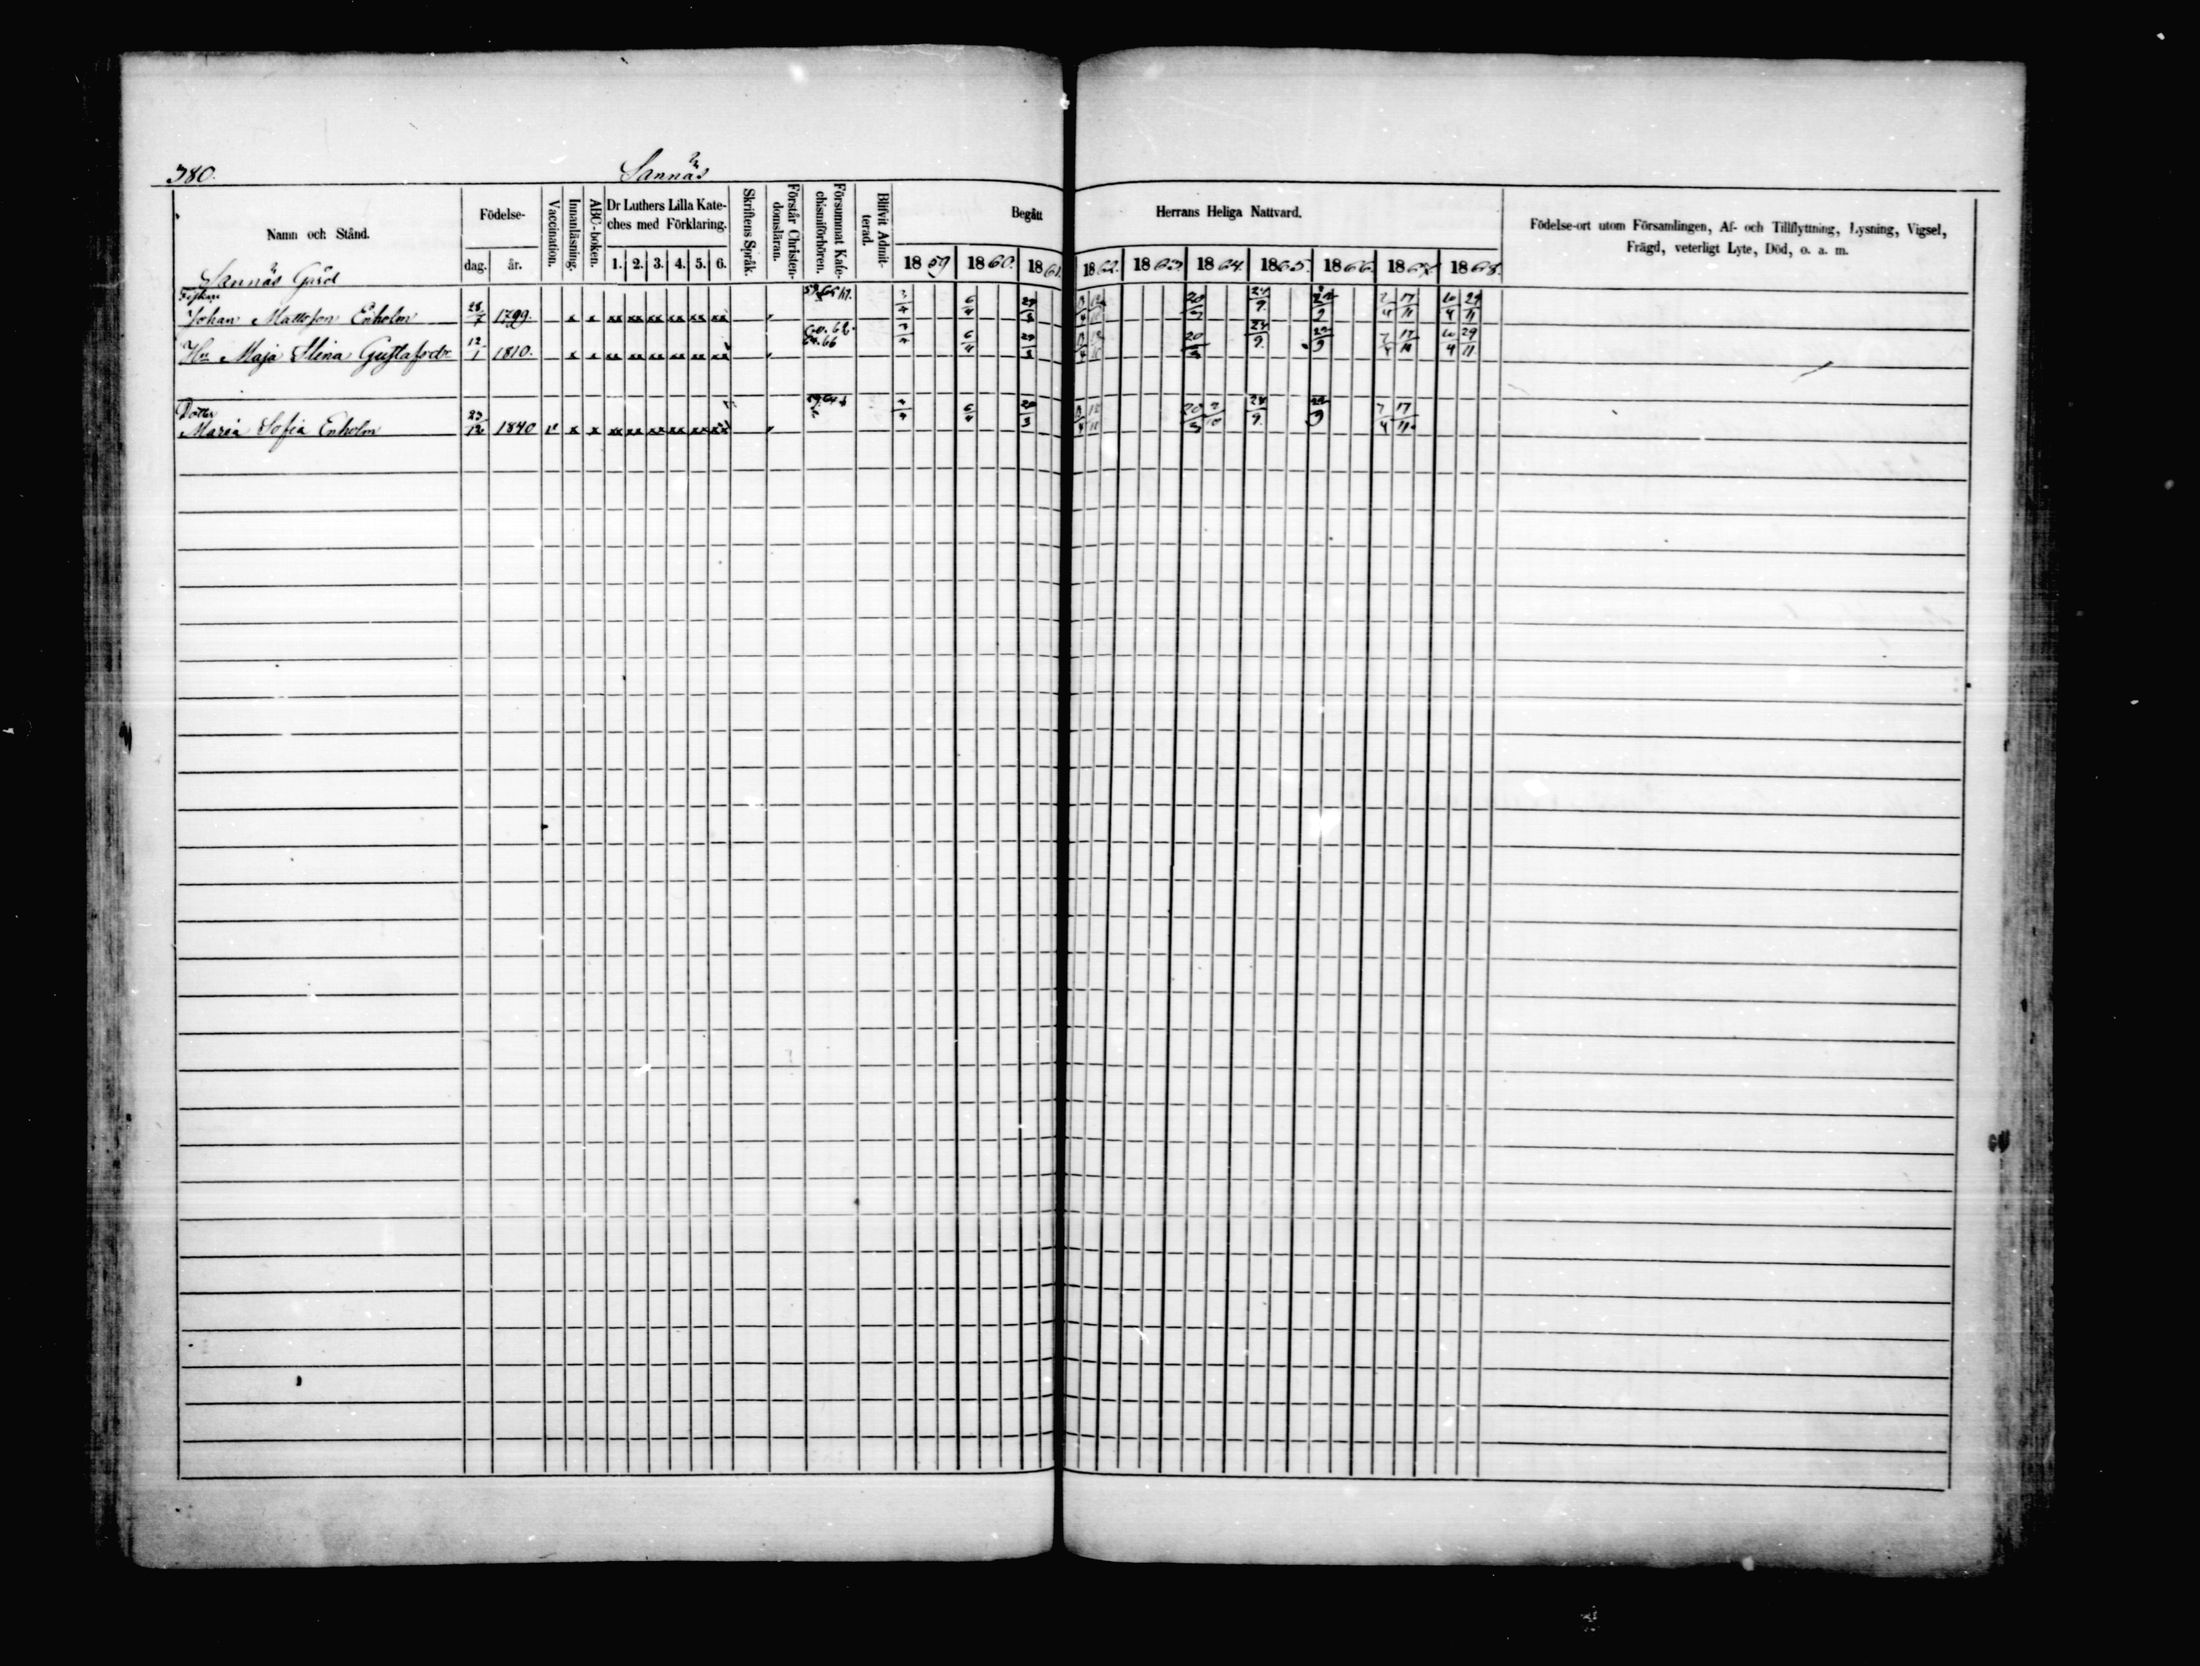 380.
Sannäs
Namn och Stånd.
Födelse-
dag.
år.
Vaccination.
Innanläsning.
ABC-boken.
Dr Luthers Lilla Kate-
ches med Förklaring.
1. 2. 3. 4. 5. 6.
Skriftens Språk.
Förstår Christen-
domsläran.
Försummat Kate-
chismiförhören.
Blifvit Admit-
terad.
Begått Herrans Heliga Nattvard.
1859 1860. 1861. 1862. 1863. 1864. 1865. 1866. 1867 1868.
Födelse-ort utom Församlingen, Af- och Tillflyttning, Lysning, Vigsel,
Frägd, veterligt Lyte, Död, o. a. m.
Sannäs Gård
Johan Mattsson Enholm 28/7 1799. x x xx xx xx xx xx xx 6/4 29/3 20/3 24/9. 22/9 7/4 17/11 10/4 29/11
Hu Maja Stina Gustafsdr 12/1 1810. x x xx xx xx xx xx xx 6/4 29/3 20/3 24/9. 22/9 7/4 17/11 10/4 29/11
Dotter
Maria Sofia Enholm 23/12 1840 v x x xx xx xx xx xx xx 6/4 29/3 20/3 9/10 24/9. 22/9 7/4 17/11